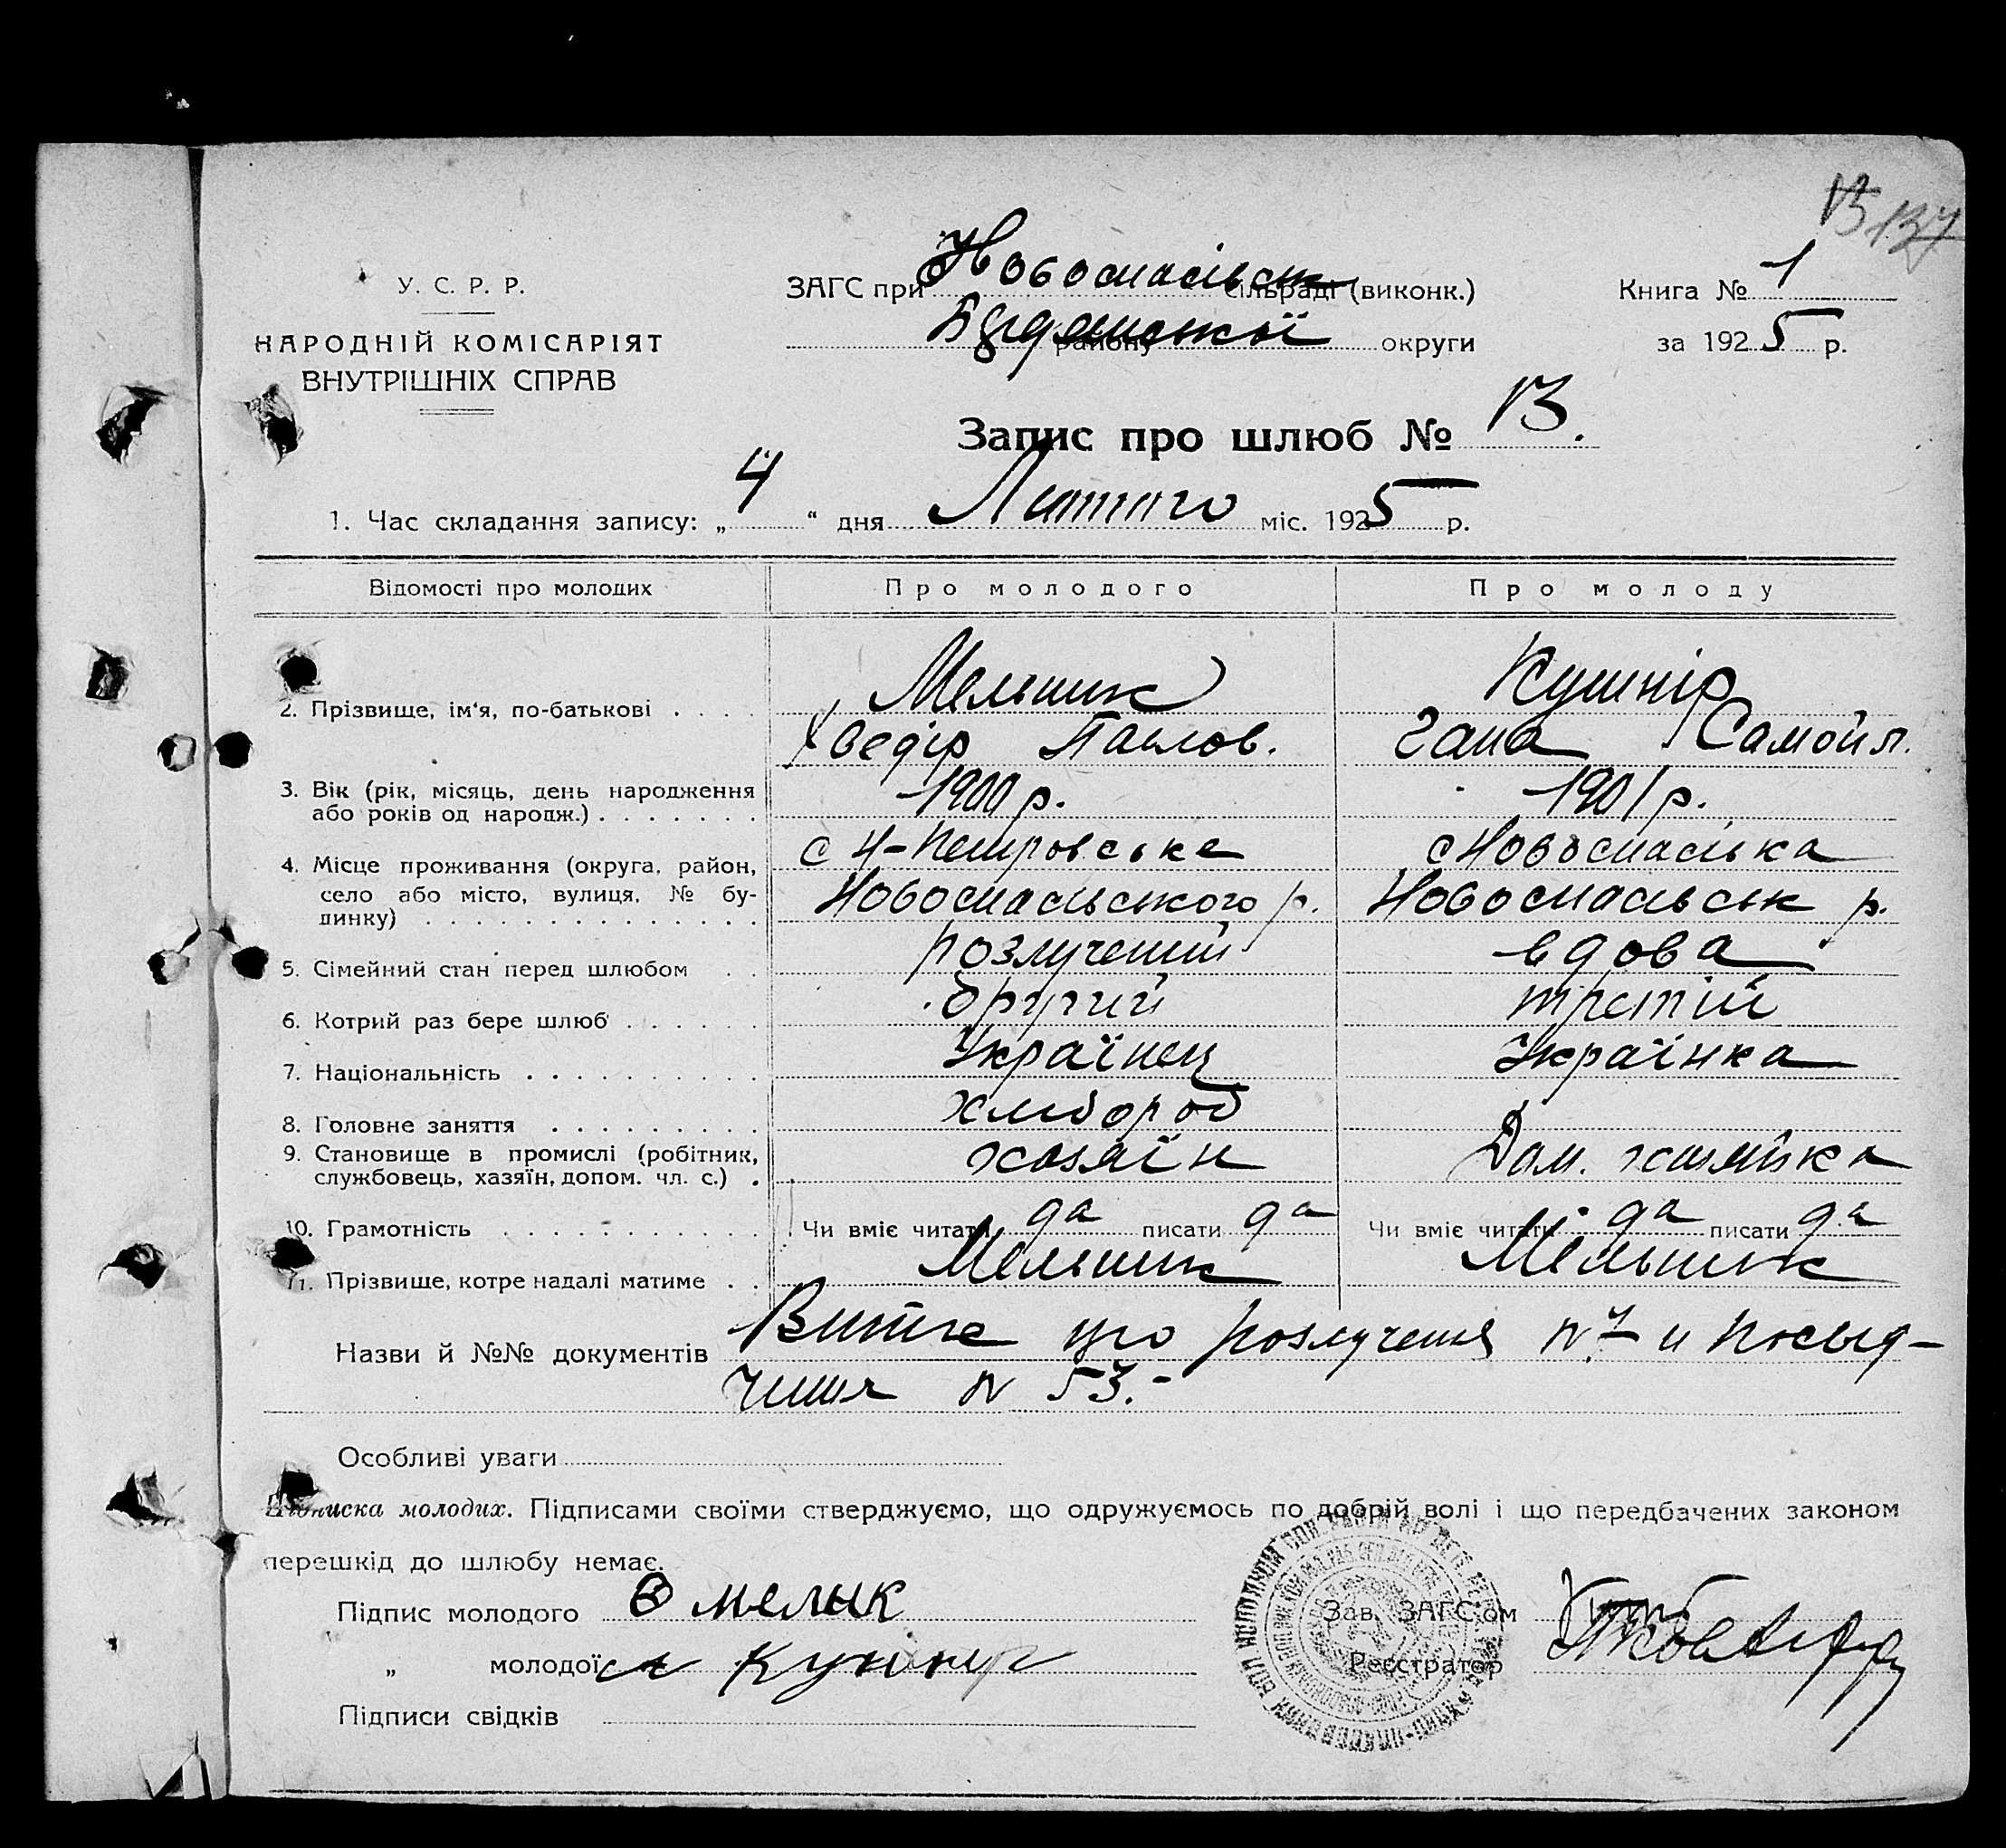 13 137
У. С. Р. Р.
НАРОДНІЙ КОМІСАРІЯТ
ВНУТРІШНІХ СПРАВ
ЗАГС при Новоспасівськ сільраді (виконк.)
району округи
Книга № 1
за 1925 р.
Запис про шлюб № 13.
1. Час складання запису: „ 4 “ дня Лютого міс. 1925 р.
Відомості про молодих Про молодого Про молоду
2. Прізвище, ім‘я, по-батькові . . . . Мельник Кушнір
Хведір Павлов. Гана Самойл.
3. Вік (рік, місяць, день народження
або років од народж.) . . . . . . . 1900 р. 1901 р.
4. Місце проживання (округа, район,
село або місто, вулиця, № бу-
динку) . . . . . . . . . . . . . . .
с Н-Петровське с Новоспаська
Новоспасівського р. Новоспасівськ р.
5. Сімейний стан перед шлюбом . . розлучений вдова
6. Котрий раз бере шлюб . . . . . . другий третій
7. Національність . . . . . . . . . . Українец Українка
8. Головне заняття . . . . . . . . . хлібороб
9. Становище в промислі (робітник,
службовець, хазяїн, допом. чл. с.) . хозяїн Дом. хозяйка
10. Грамотність . . . . . . . . . . . Чи вміє читати да писати да Чи вміє читати да писати да
11. Прізвище, котре надалі матиме . . Мельник Мельник
Назви й №№ документів Витяг про розлучення № 7 и посвід-
чиння № 53.-
Особливі уваги
Підписка молодих. Підписами своїми стверджуємо, що одружуємось по добрій волі і що передбачених законом
перешкід до шлюбу немає.
Підпис молодого Ѳ мелник
„ молодої кушнир
Зав. ЗАГС‘ом
Реєстратор
Підписи свідків